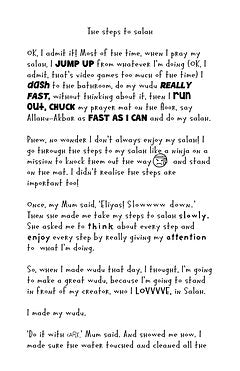 The steps to salah
OK, I admit it! Most of the time, when I pray my
salah, I JUMP UP from whatever I'm doing (OK, I
admit, that's video games too much of the time) I
dash to the bathroom, do my wudu REALLY
FAST, without thinking about it, then I run
out, CHUCK my prayer mat on the floor, say
Allahu-Akbar as FAST AS I CAN and do my salah.
Phew, no wonder I don't always enjoy my salah! I
go through the steps to my salah like a ninja on a
mission to knock them out the way and stand
on the mat. I didn't realise the steps are
important too!
Once, my Mum said, 'Eliyas! Slowwww down.'
Then she made me take my steps to salah slowly.
She asked me to think about every step and
enjoy every step by really giving my attention
to what I'm doing.
So, when I made wudu that day, I thought, I'm going
to make a great wudu, because I'm going to stand
in front of my creator, who I LOVVVVE, in Salah.
I made my wudu.
'Do it with care,' Mum said. And showed me how. I
made sure the water touched and cleaned all the